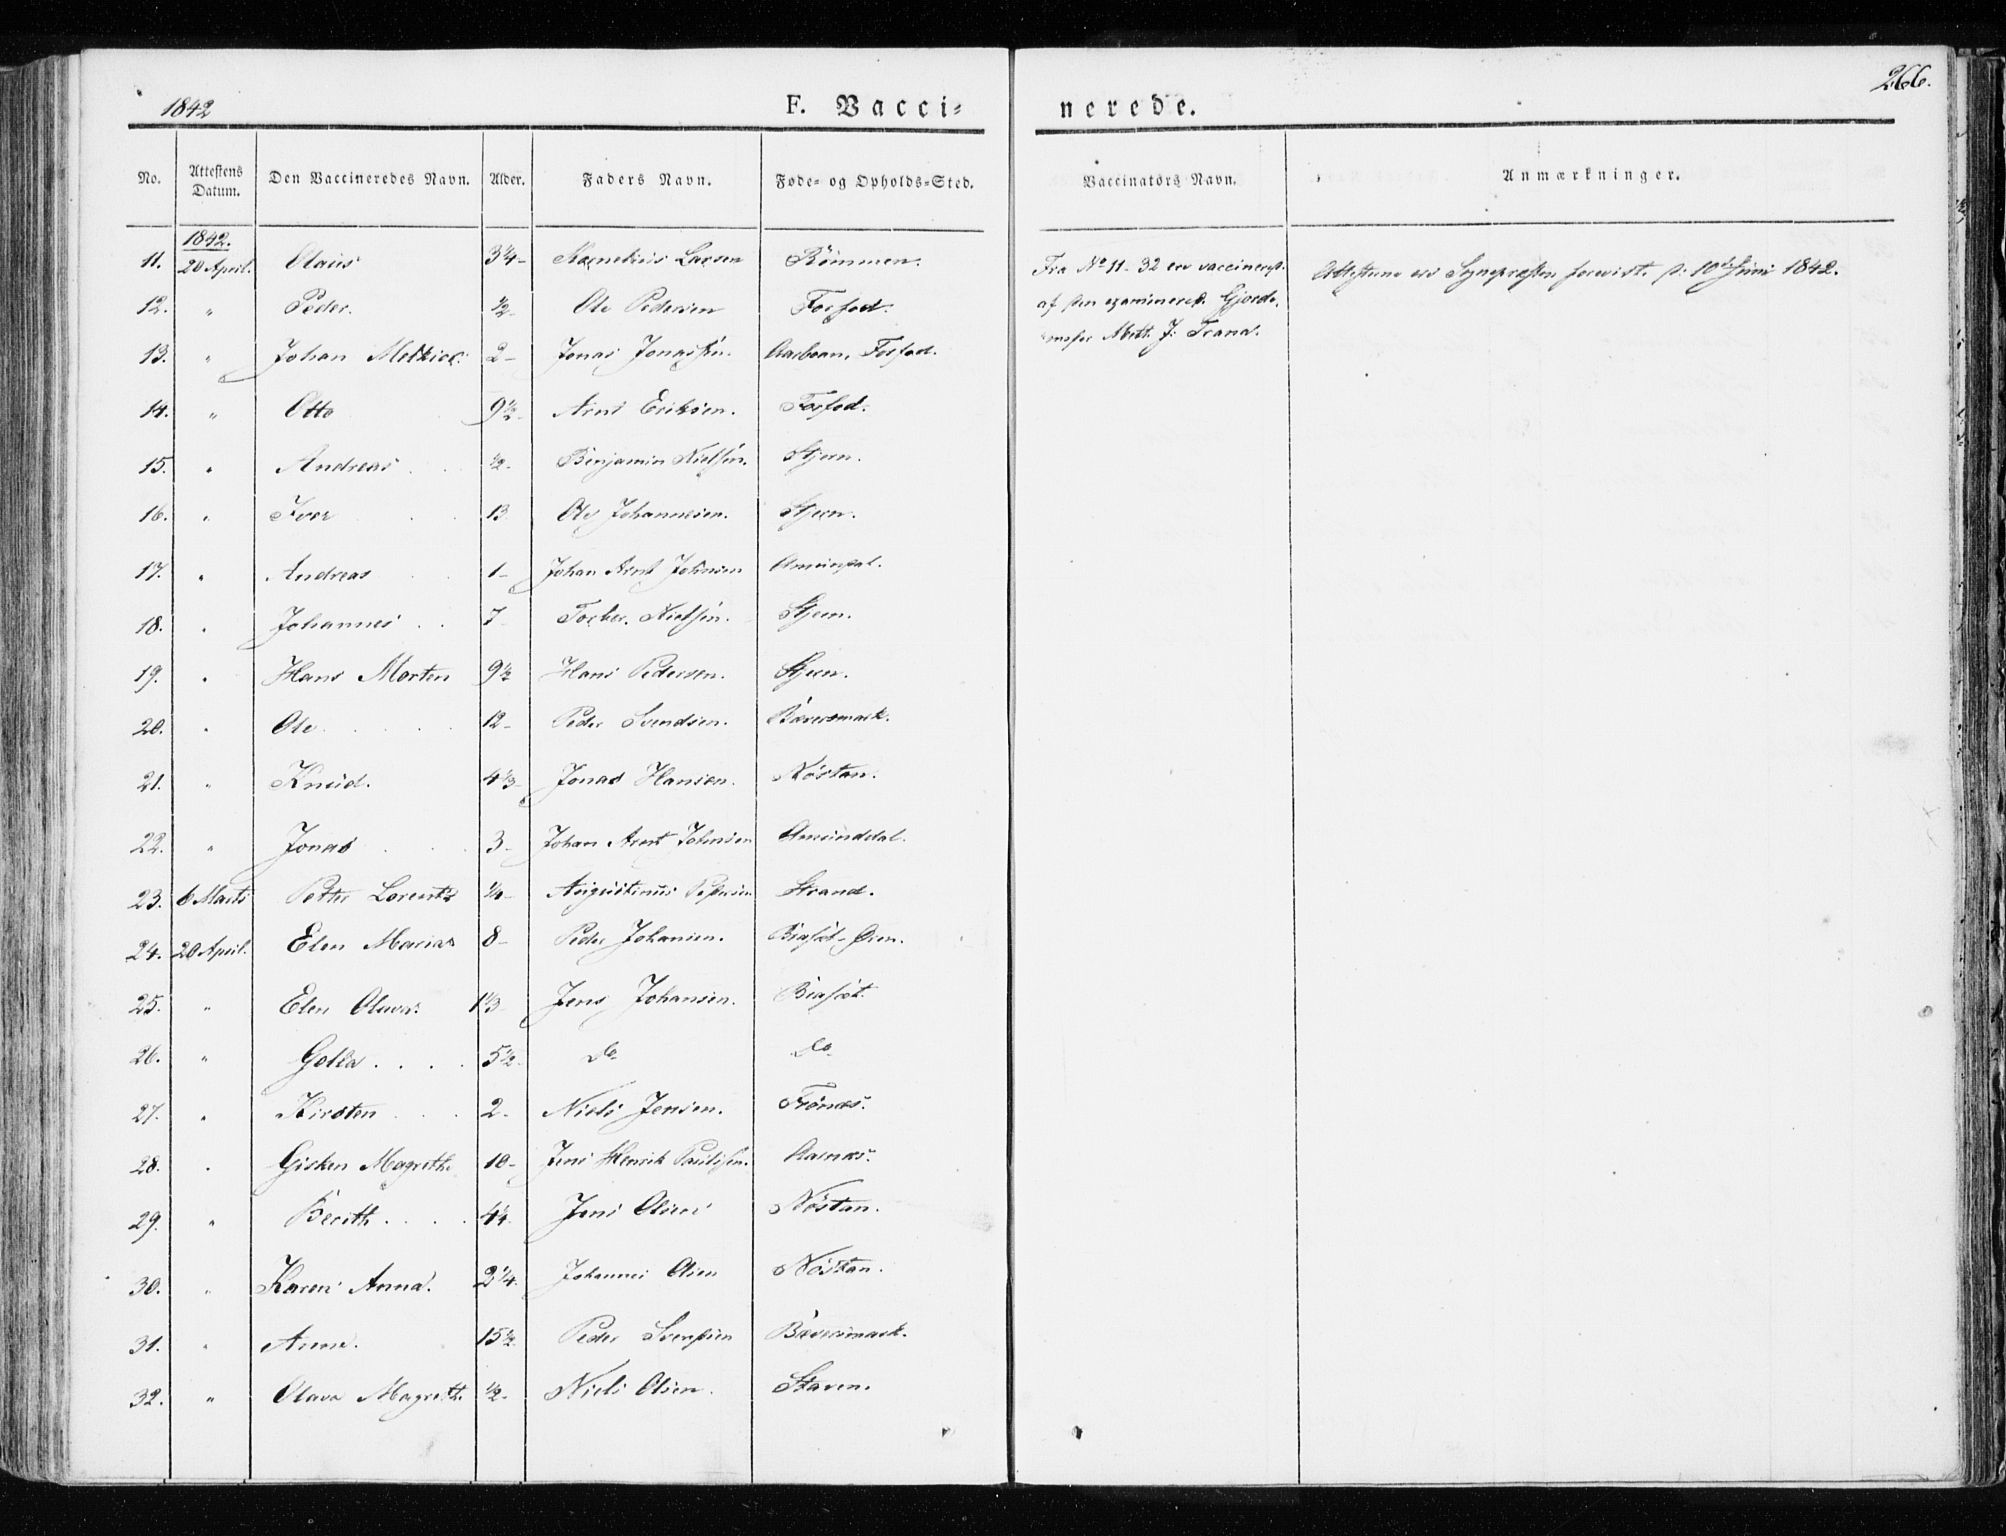 266.
1842
F. Vacci-
nerede.
No. Attestens Datum. Den Vaccineredes Navn. Alder. Faders Navn. Føde- og Opholds-Sted. Vaccinatörs Navn. Anmærkninger.
1842.
11. 20 April. Olaus 3 1/4 - Kornelius Larsen Römmen. Fra No 11-32 ere vaccineret Attesterne ere Sognepræsten foreviste d: 10d Juni 1842.
12. " Peder. 1/2 - Ole Pedersen Forfod. af den examinerede Gjorde-
13. " Johan Melkior. 2 - Jonas Jonassen. Forfod. Meth. J. Trana.
14. " Otto 9 1/2 - Arnt Eriksen. Forfod.
15. " Andreas . . 1/2 - Benjamin Nielsen. Stjern.
16. " Iver . . 13 Ole Johannesen. Stjern.
17. " Andreas . . 1 - Johan Arnt Johnsen Amundal.
18. " Johannes . . 7 - Torber. Nielsen. Stjern.
19. " Hans Morten 9 1/2 Hans Pedersen. Stjern.
20. " Ole . . . . . 12 - Peder Svendsen. Bæversmark.
21. " Knud. 4 1/3 - Jonas Hansen. Nöstan.
22. " Jonas . . 3 - Johan Arnt Johnsen Amunddal.
23. 6 Marts Petter Lorents 1/4 - Augustinus Pedersen Strand.
24. 20 April. Elen Maria 8 - Peder Johansen. Biasæt-Øien.
25. " Elen Olava. 1 1/3 Jens Johansen. Biasæt.
26. " Golla . . . . 5 1/2 - Do Do
27. " Kirsten . . . 2 - Niels Jensen. Frönæs.
28. " Gisken Magrethe 10 - Jens Henrik Paulsen. Aarnæs.
29. " Berith . . . . 4 1/4. Jens Olsen Nöstan.
30. " Karen Anna. 2 1/4. Johannes Olsen Nöstan.
31. " Anne. 15 1/2 Peder Svendsen Bæversmark.
32. " Olava Magrethe 1/2 - Niels Olsen. Staven.